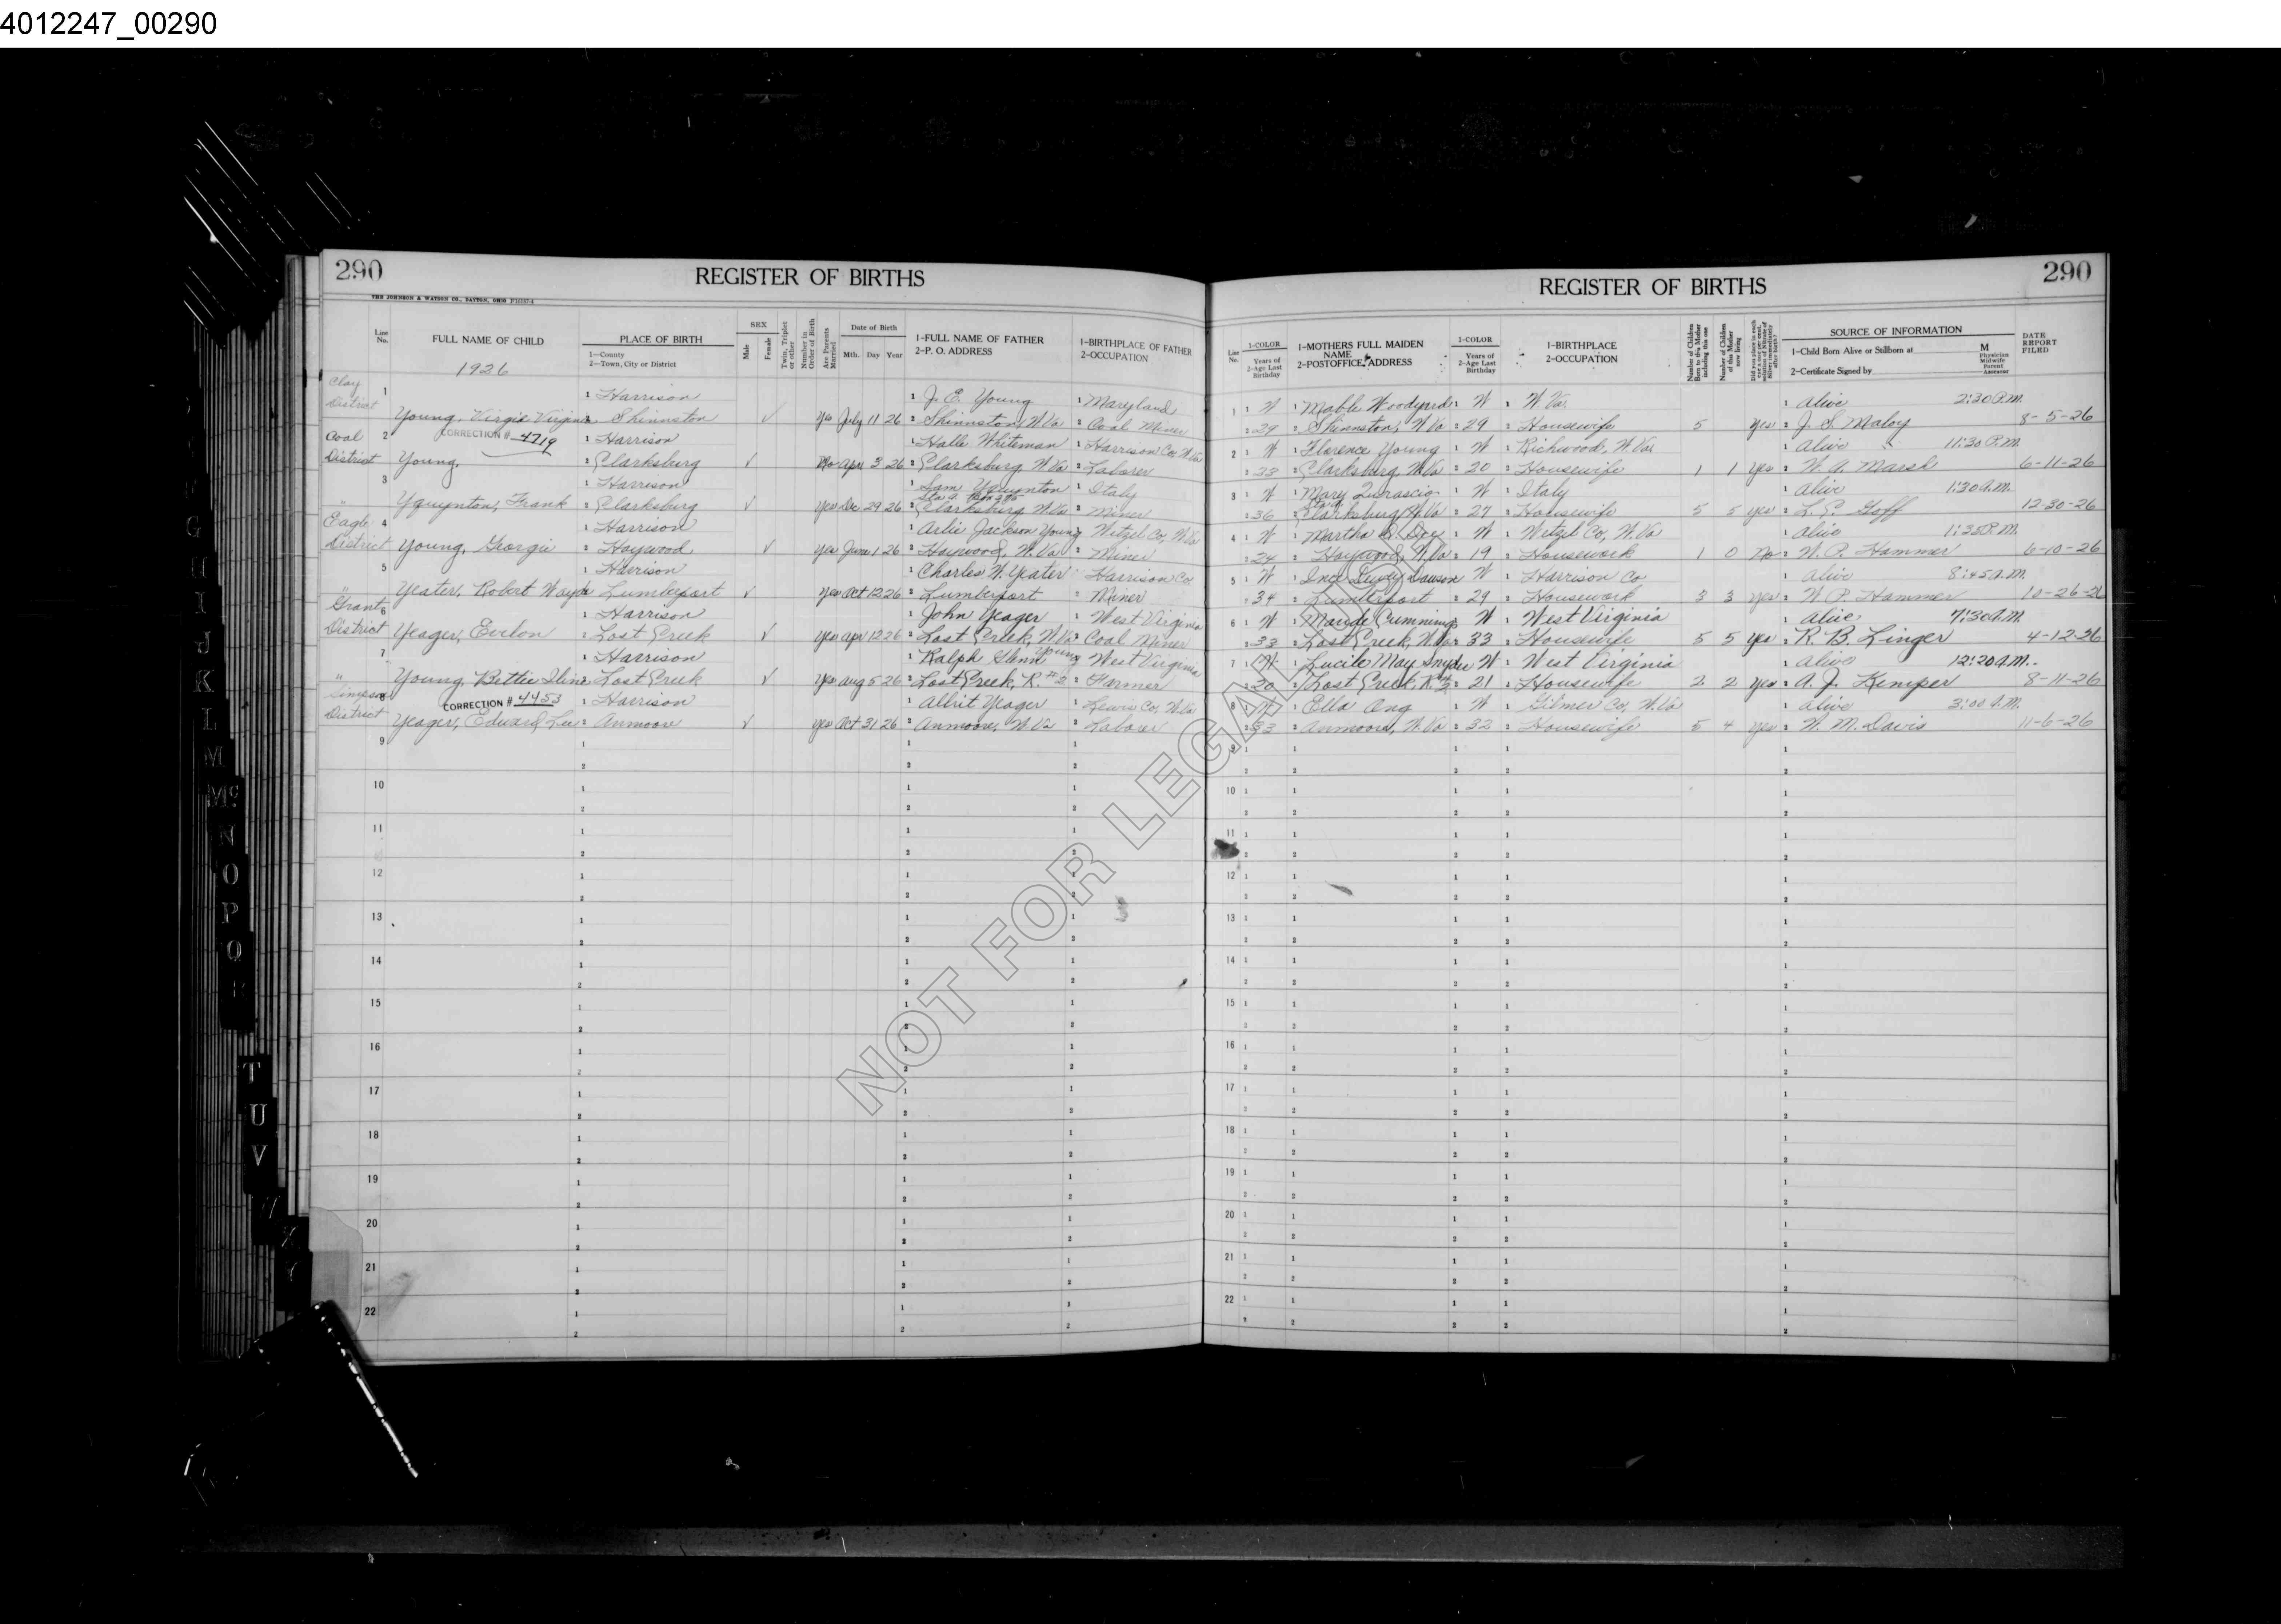 4012247_00290
290 REGISTER OF BIRTHS
THE JOHNSON & WATSON CO., DAYTON, OHIO
Line No. FULL NAME OF CHILD PLACE OF BIRTH SEX Date of Birth 1-FULL NAME OF FATHER 1-BIRTHPLACE OF FATHER
1—County 2—Town, City or District Male Female Twin, Triplet or other Number in Order of Birth Are Parents Married Mth. Day Year 2-P. O. ADDRESS 2-OCCUPATION
1926
Clay District 1 1 Harrison 1 J. E. Young 1 Maryland
Young, Virgie 2 Shinnston √ Yes July 11 26 2 Shinnston, W. Va 2 Coal Miner
CORRECTION # 4719
Coal District 2 1 Harrison 1 Halle Whiteman 1 Harrison Co, W. Va
Young, 2 Clarksburg √ No Apr 3 26 2 Clarksburg W. Va 2 Laborer
3 1 Harrison 1 Sam Yquynton 1 Italy
Sta a. Box 395
" Yquynton, Frank 2 Clarksburg √ Yes Dec 29 26 2 Clarksburg W. Va 2 Miner
Eagle District 4 1 Harrison 1 Arlie Jackson Young Wetzel Co, W. Va
Young, Georgie 2 Haywood √ Yes June 1 26 2 Haywood, W. Va 2 Miner
5 1 Harrison 1 Charles W. Yeater Harrison Co
" Yeater, Robert Wayde 2 Lumberport √ Yes Oct 12 26 2 Lumberport 2 Miner
Grant District 6 1 Harrison 1 John Yeager 1 West Virginia
Yeager, Evelon 2 Lost Creek √ Yes Apr 12 26 2 Lost Creek, W. Va 2 Coal Miner
7 1 Harrison 1 Ralph Glenn Young 1 West Virginia
" Young, Bettie Iline 2 Lost Creek √ Yes Aug 5 26 2 Lost Creek, R. #2 2 Farmer
Simpson District 8 CORRECTION # 4453 1 Harrison 1 Albrit Yeager 1 Lewis Co, W. Va
Yeager, Edward Lee 2 Anmoore √ Yes Oct 31 26 2 Anmoore, W. Va 2 Laborer
9
10
11
12
13
14
15
16
17
18
19
20
21
22
REGISTER OF BIRTHS 290
Line No. 1-COLOR 1-MOTHERS FULL MAIDEN NAME 1-COLOR 1-BIRTHPLACE SOURCE OF INFORMATION DATE REPORT FILED
Years of 2-Age Last Birthday 2-POSTOFFICE ADDRESS Years of 2-Age Last Birthday 2-OCCUPATION Number of Children Born to this Mother including this one Number of Children of this Mother now living 1-Child Born Alive or Stillborn at M
2-Certificate Signed by Physician Midwife Parent Assessor
1 1 W 1 Mable Woodyard 1 W 1 W Va. 1 Alive 2:30 P.M.
2 29 2 Shinnston, W. Va 2 29 2 Housewife 5 Yes 2 J. S. Maloy 8-5-26
2 1 W 1 Florence Young 1 W 1 Richwood, W. Va 1 Alive 11:30 P.M.
2 23 2 Clarksburg W. Va 2 20 2 Housewife 1 1 Yes 2 W. A. Marsh 6-11-26
3 1 W 1 Mary 1 W 1 Italy 1 Alive 1:30 A.M.
2 36 2 Clarksburg W. Va 2 27 2 Housewife 5 5 yes 2 L. E. Goff 12-30-26
4 1 W 1 Martha 1 W 1 Wetzel Co, W. Va 1 Alive 1:35 P.M.
2 24 2 Haywood, W. Va 2 19 2 Housework 1 0 No 2 W. P. Hammer 6-10-26
5 1 W 1 Inez Dewey Dawson W 1 Harrison Co 1 Alive 8:45 A.M.
2 34 2 Lumberport 2 29 2 Housework 3 3 yes 2 W. P. Hammer 10-26-26
6 1 W 1 Maude Cummings W 1 West Virginia 1 Alive 7:30 A.M.
2 33 2 Lost Creek, W. Va 2 33 2 Housewife 5 5 yes 2 R. B. Linger 4-12-26
7 1 W 1 Lucile May Snyder W 1 West Virginia 1 Alive 12:20 A.M.
2 20 2 Lost Creek, R #2 2 21 2 Housewife 2 2 Yes 2 A. J. Kemper 8-11-26
8 1 W 1 Ella Ang 1 W 1 Gilmer Co, W. Va 1 Alive 3:00 A.M.
2 33 2 Anmoore, W. Va 2 32 2 Housewife 5 4 yes 2 W. M. Davis 11-6-26
9
10
11
12
13
14
15
16
17
18
19
20
21
22
NOT FOR LEGAL
G
H
I
J
K
L
M
Mc
N
O
P
Q
R
T
U
V
W
X
Y